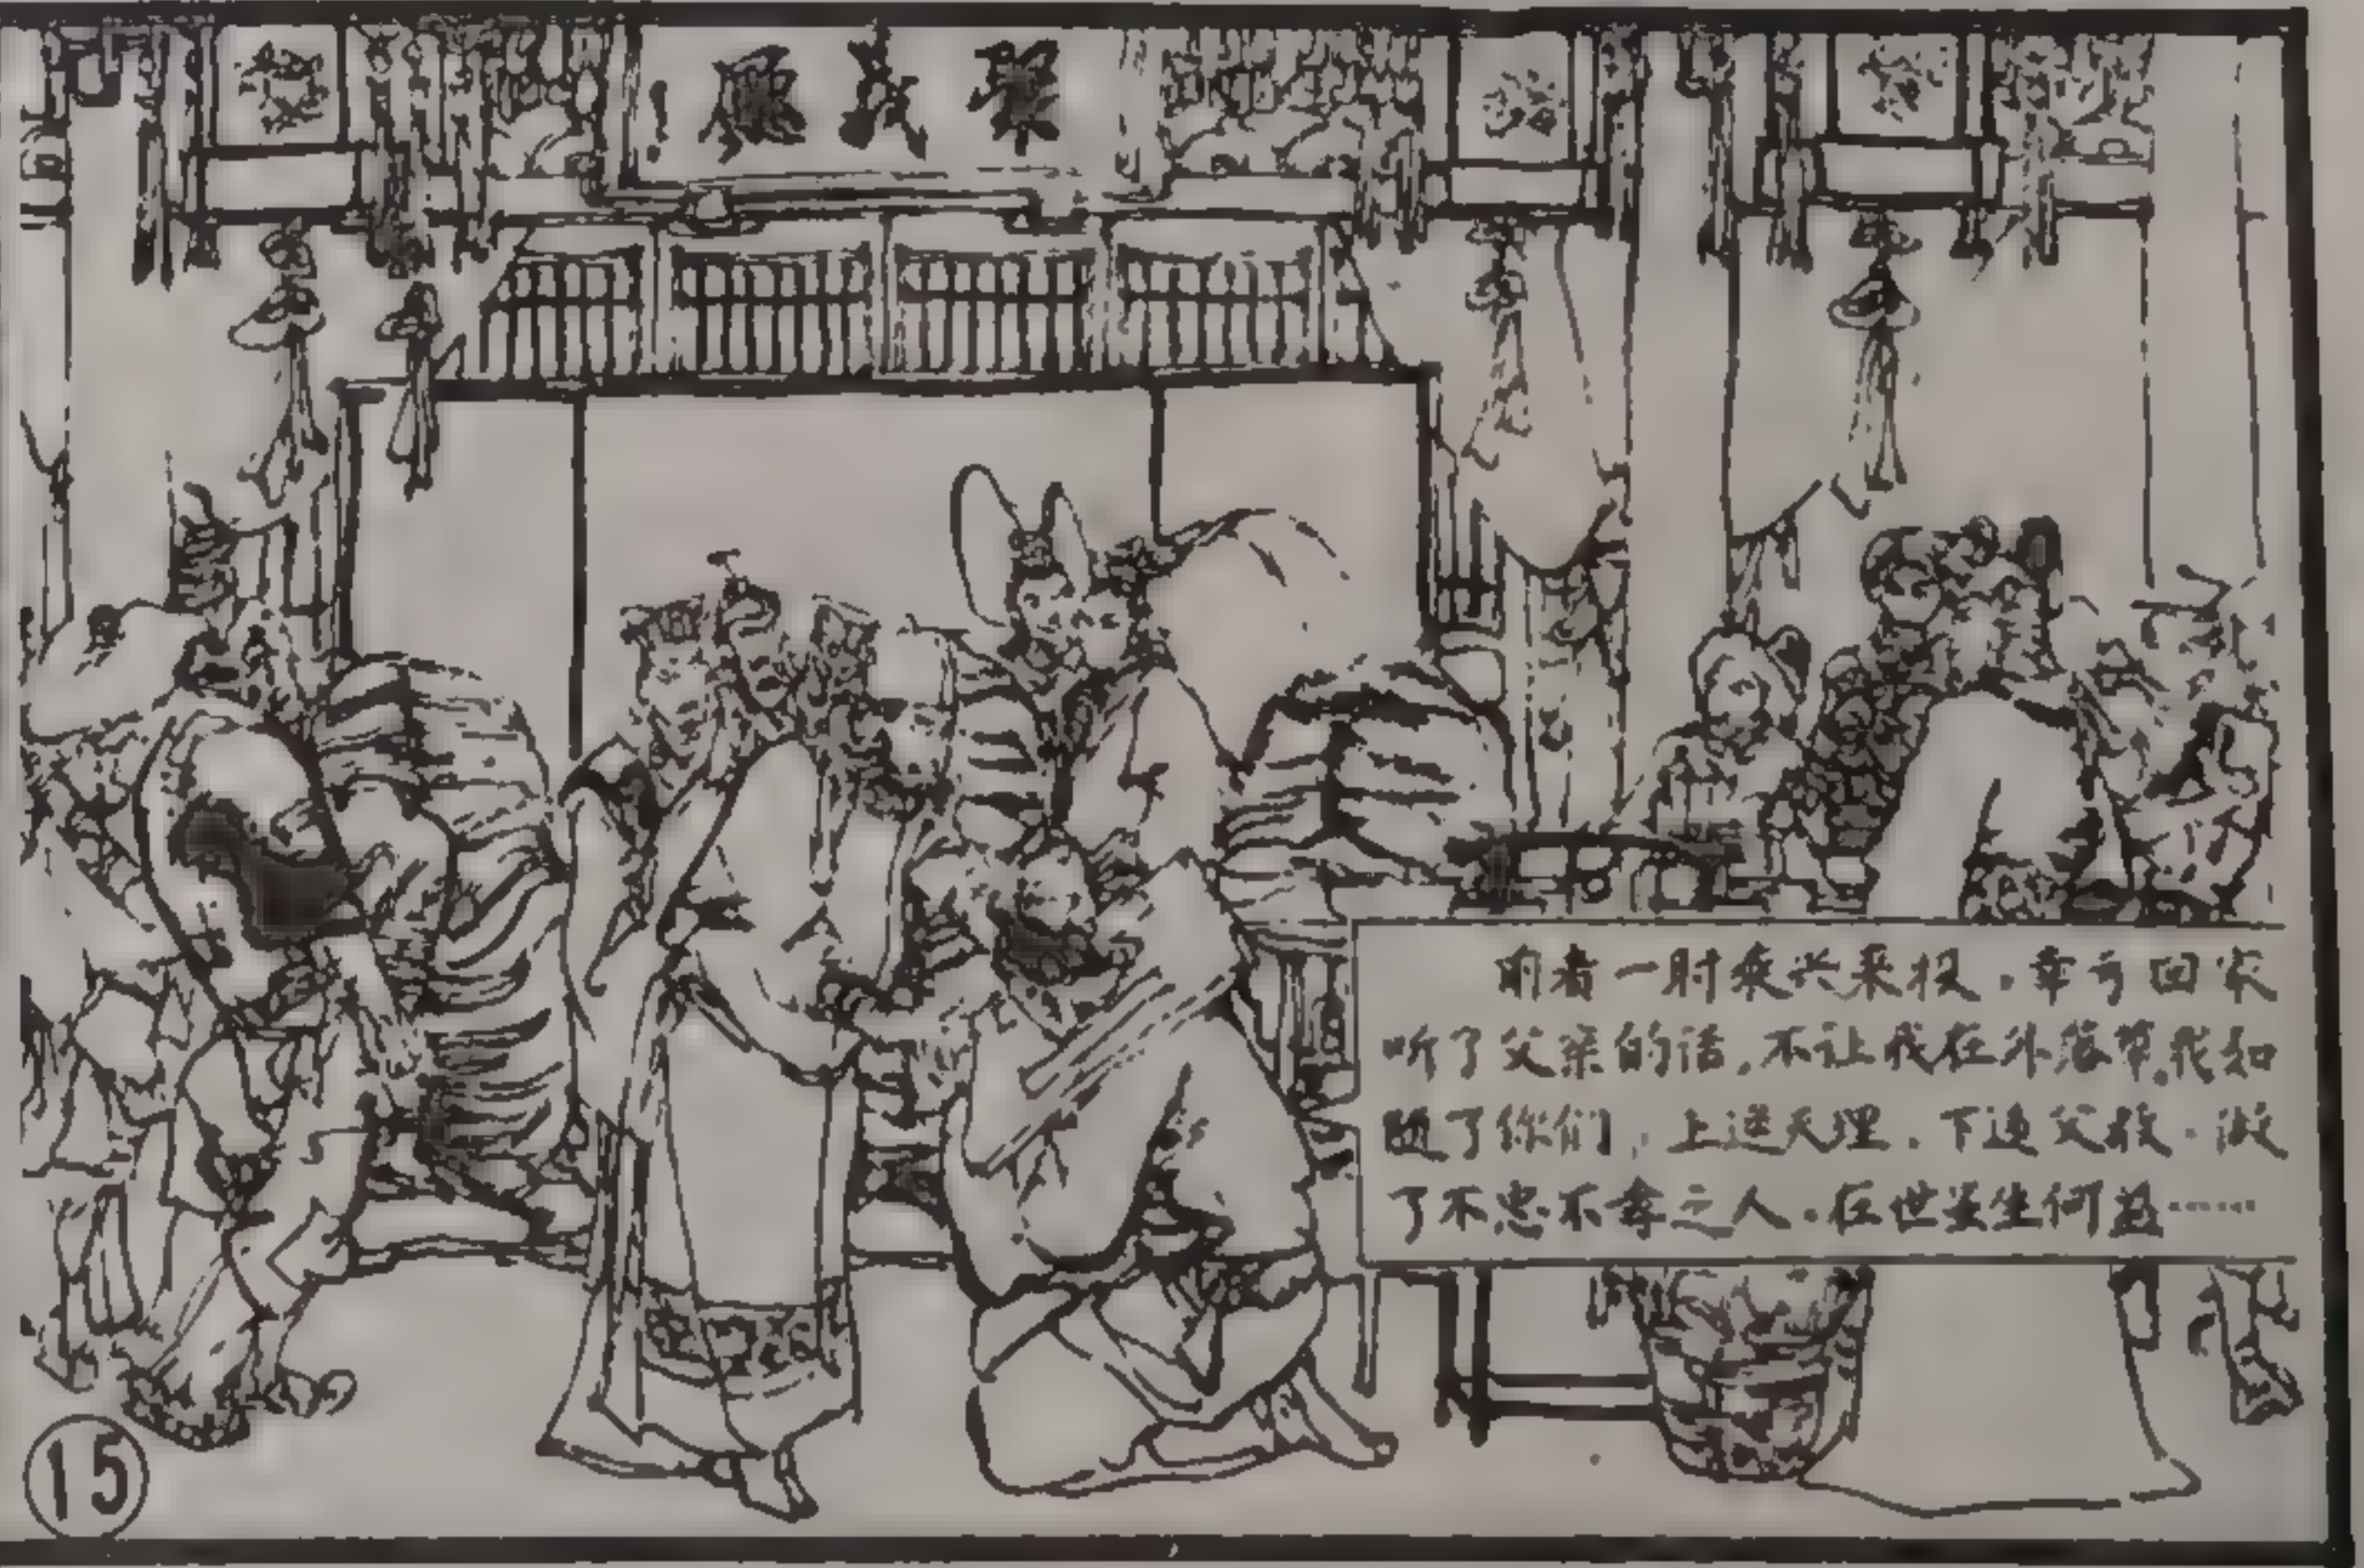 聚义厅
前者一时乘兴来投，幸亏回家
听了父亲的话，不让我在外落草。我如
随了你们，上逆天理，下违父教，做
了不忠不孝之人，在世虽生何益……
15